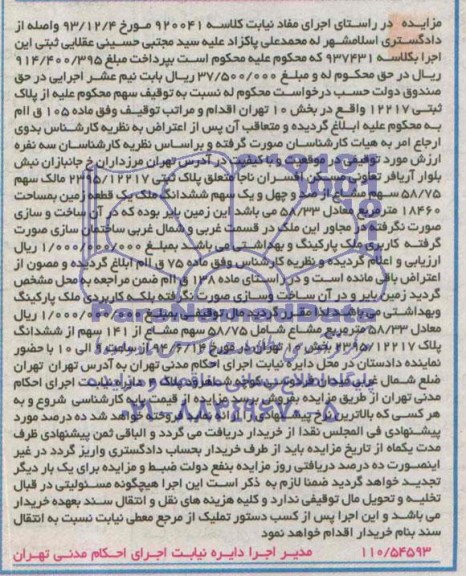 مزایده در راستای اجرای مفاد نیابت کلاسه ۹۲۰۰۴۱ مورخ ۹۳/۱۲/۴ واصله از
دادگستری اسلامشهر له محمدعلی پاکزاد علیه سید مجتبی حسینی عقلایی ثبتی این
اجرا بکلاسه ۹۳۷۴۳۱ که محکوم علیه محکوم است بپرداخت مبلغ ۹۱۴/۴۰۰/۳۹۵
ریال در حق محکوم له و مبلغ ۳۷/۵۰۰/۰۰۰ ریال بابت نیم عشر اجرایی در حق
صندوق دولت حسب درخواست محکوم له نسبت به توقیف سهم محکوم علیه از پلاک
ثبتی ۱۲۲۱۷ واقع در بخش ۱۰ تهران اقدام و مراتب توقیف وفق ماده ۱۰۵ ق اام
به محکوم علیه ابلاغ گردیده و متعاقب آن پس از اعتراض به نظریه کارشناس بدوی
ارجاع امر به هیات کارشناسان صورت گرفته و براساس نظریه کارشناسان سه نفره
ارزش مورد توقیفی با موقعیت و با کیفیت در آدرس تهران مرزداران خ جانبازان نبش
بلوار آریافر تعاونی مسکن افسران ناجا متعلق پلاک ثبتی ۲۳۹۵/۱۲۲۱۷ مالک سهم
۵۸/۷۵ سهم مشاع از صد و چهل و یک سهم ششدانگ ملک یک قطعه زمین بمساحت
۱۸۴۶۰ مترمربع معادل ۵۸/۳۳ می باشد این زمین بایر بوده که در آن ساخت و سازی
صورت نگرفته در مجاور این ملک در قسمت غربی و شمال غربی ساختمان سازی صورت
گرفته کاربری ملک پارکینگ و بهداشتی می باشد بمبلغ ۱/۰۰۰/۰۰۰/۰۰۰ ریال
ارزیابی و اعلام گردیده و نظریه کارشناس وفق ماده ۷۵ ق اام ابلاغ گردیده و مصون از
اعتراض باقی مانده است و در راستای ماده ۱۳۸ ق اام ضمن مراجعه به محل مشخص
گردید زمین بایر و در آن ساخت وسازی صورت نگرفته بلکه کاربردی ملک پارکینگ
وبهداشتی می باشد لذا مقرر گردید مال توقیفی بمبلغ ۱/۰۰۰/۰۰۰/۰۰۰ ریال
معادل ۵۸/۳۳ مترمربع مشاع شامل ۵۸/۷۵ سهم مشاع از ۱۴۱ سهم از ششدانگ
پلاک ۲۳۹۵/۱۲۲۱۷ بخش ۱۰ تهران در مورخ ۹۴/۶/۱۴ از ساعت ۹ الی ۱۰ با حضور
نماینده دادستان در محل دایره نیابت اجرای احکام مدنی تهران به آدرس تهران تهران
ضلع شمال غربی میدان فردوسی کوچه شاهرود پلاک دایره نیابت اجرای احکام
مدنی تهران از طریق مزایده بفروش برسد مزایده از قیمت پایه کارشناسی شروع و به
هر کسی که بالاترین نرخ پیشنهادی را ارائه نماید فروخته خواهد شد ده درصد مورد
پیشنهادی فی المجلس نقدا از خریدار دریافت می گردد و الباقی ثمن پیشنهادی ظرف
مدت یکماه از تاریخ مزایده باید از طرف خریدار بحساب دادگستری واریز گردد در غیر
اینصورت ده درصد دریافتی روز مزایده بنفع دولت ضبط و مزایده برای یک بار دیگر
تجدید خواهد گردید ضمنا لازم به ذکر است این اجرا هیچگونه مسئولیتی در قبال
تخلیه و تحویل مال توقیفی ندارد و کلیه هزینه های نقل و انتقال سند بعهده خریدار
می باشد و این اجرا پس از کسب دستور تملیک از مرجع معطی نیابت نسبت به انتقال
سند بنام خریدار اقدام خواهد نمود
۱۱۰/۵۴۵۹۳ مدیر اجرا دایره نیابت اجرای احکام مدنی تهران